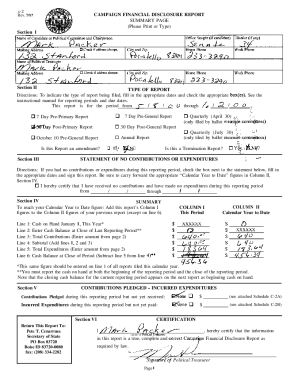 C-2
Rev. 3/97
CAMPAIGN FINANCIAL DISCLOSURE REPORT
SUMMARY PAGE
(Please Print or Type)
Section I
Name of Candidate or Political Committee and Chairperson
Mark Packer
Office Sought (if candidate)
Senate
District (if any)
34
Mailing Address
Check if address change
City and Zip
Home Phone
Work Phone
132 Stanford
Pocatello 8320
233-3290
Name of Political Treasurer
Mark Packer
Mailing Address
Check if address change
City and Zip
Home Phone
Work Phone
132 Stanford
Pocatello 8320
Section II
TYPE OF REPORT
Directions: To indicate the type of report being filed, fill in the appropriate dates and check the appropriate box(es). See the
instruction manual for reporting periods and dates.
This report is for the period from through
7 Day Pre-Primary Report
7 Day Pre-General Report
Quarterly (April 30)
(only filed by ballot measure committees)
30 Day Post-Primary Report
30 Day Post-General Report
Quarterly (July 30)
(only filed by ballot measure committees)
October 10 Pre-General Report
Annual Report
Is this Report an amendment?
Is this a Termination Report?
Section III
STATEMENT OF NO CONTRIBUTIONS OR EXPENDITURES
Directions: If you had no contributions or expenditures during this reporting period, check the box next to the statement below, fill in
the appropriate dates and sign this report. Be sure to carry forward the appropriate "Calendar Year to Date" figures in
Section IV.
I hereby certify that I have received no contributions and have made no expenditures during this reporting period
from through
Section IV
SUMMARY
To reach your Calendar Year to Date figure: Add this report's Column I
figures to the Column II figures of your previous report (except on line 6).
COLUMN I
This Period
COLUMN II
Calendar Year to Date
Line 1: Cash on Hand January 1, This Year*
Line 2: Enter Cash Balance at Close of Last Reporting Period**
Line 3: Total Contributions (Enter amount from page 2)
Line 4: Subtotal (Add lines 1, 2 and 3)
Line 5: Total Expenditures (Enter amount from page 2)
Line 6: Cash Balance at Close of Period (Subtract line 5 from line 4)**
456.34
*This same figure should be entered on line 1 of all reports filed this calendar year.
**You must report the cash on hand at both the beginning of the reporting period and the close of the reporting period.
Note that the closing cash balance for the current reporting period appears on the next report as beginning cash on hand.
Section V
CONTRIBUTIONS PLEDGED - INCURRED EXPENDITURES
Contributions Pledged during this reporting period but not yet received:
(see attached Schedule C-2A)
Expenditures Incurred during this reporting period but not yet paid:
(see attached Schedule C-2B)
Return This Report To:
Pete T. Cenarrusa
Secretary of State
PO Box 83720
Boise ID 83720-0080
fax: (208) 334-2282
Section VI
CERTIFICATION
I, Mark Packer, hereby certify that the information
in this report is a true, complete and correct Campaign Financial Disclosure Report as
required by law.
Signature of Political Treasurer
Page 1